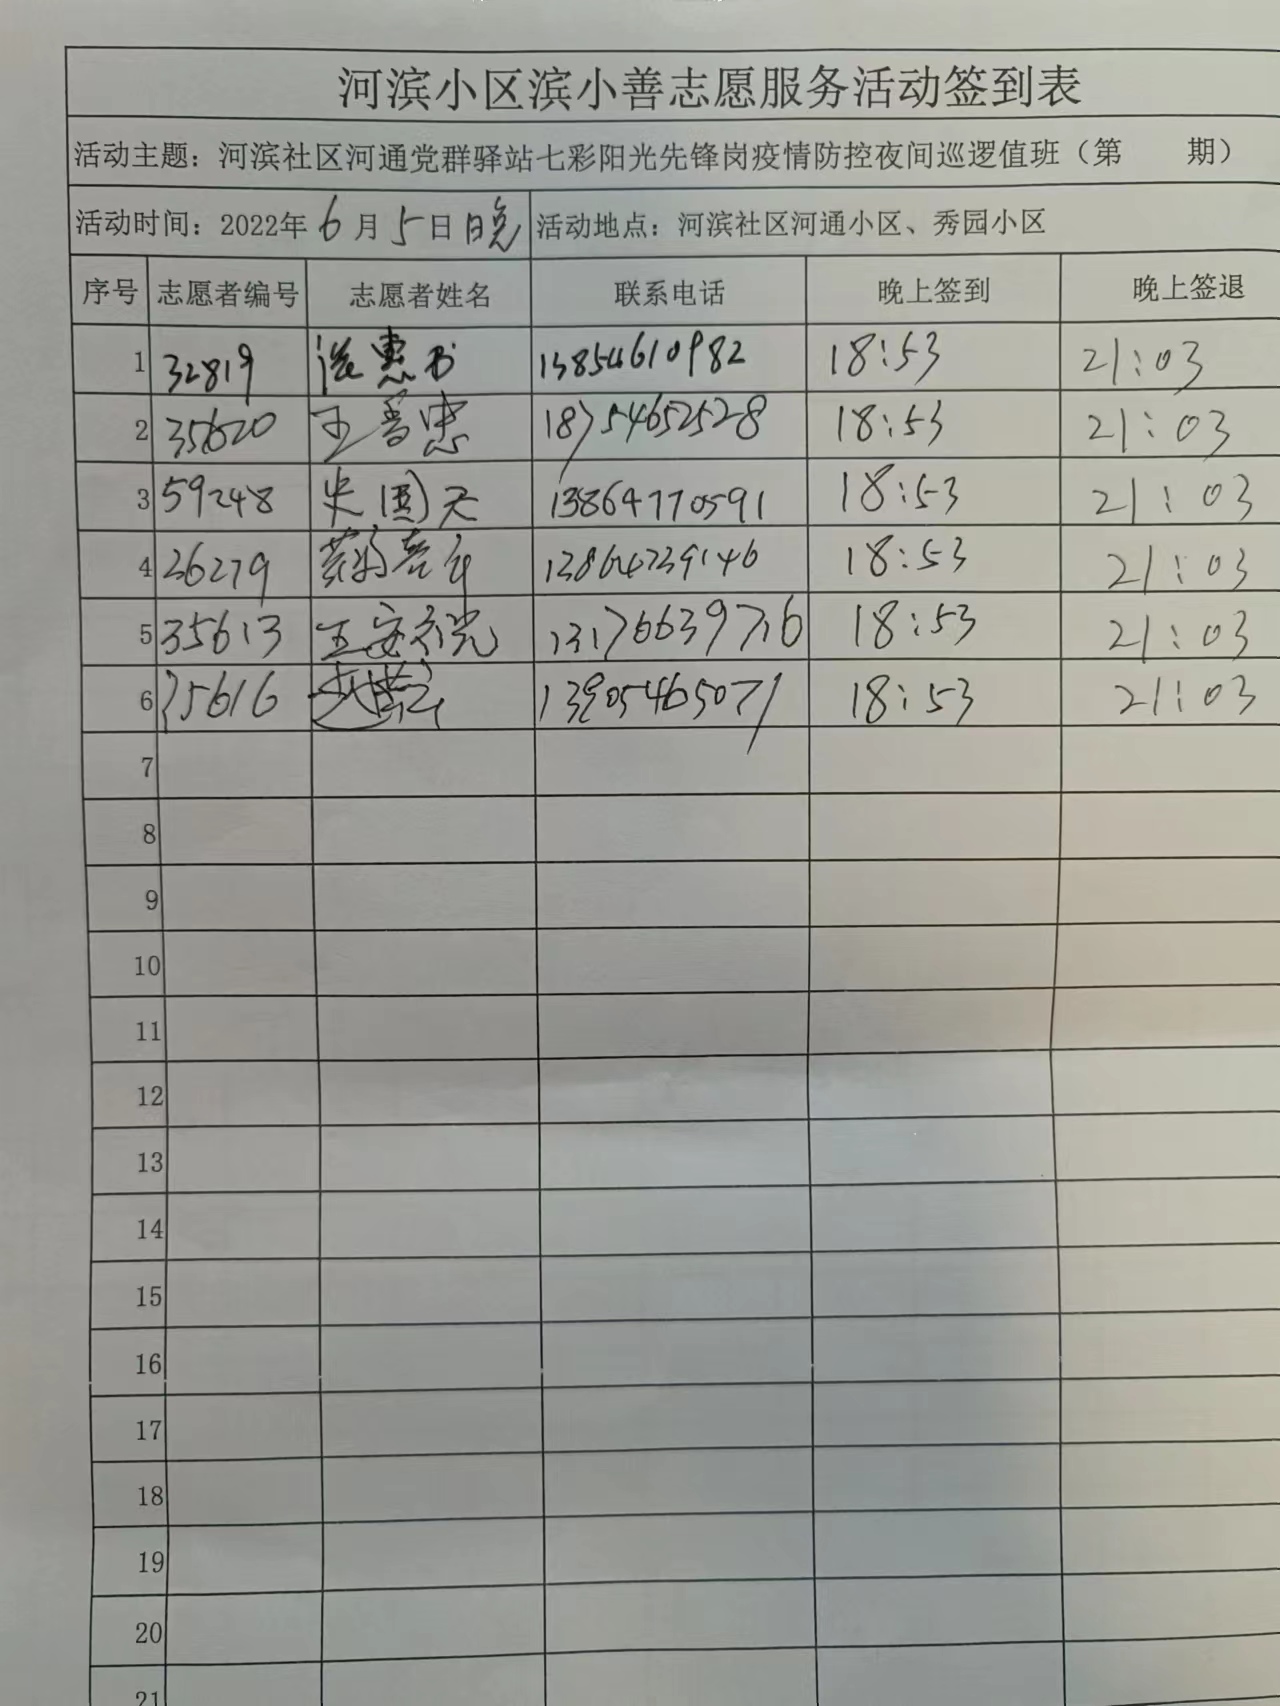 河滨小区滨小善志愿服务活动签到表
活动主题：河滨社区河通党群驿站七彩阳光先锋岗疫情防控夜间巡逻值班（第 期）
活动时间：2022年6月5日晚 活动地点：河滨社区河通小区、秀园小区
序号 志愿者编号 志愿者姓名 联系电话 晚上签到 晚上签退
1 32819 13854610982 18:53 21:03
2 35620 王普忠 18754652528 18:53 21:03
3 59248 史国天 13864770591 18:53 21:03
4 26279 13864739146 18:53 21:03
5 35613 王安祝 13176639716 18:53 21:03
6 35616 13905465071 18:53 21:03
7
8
9
10
11
12
13
14
15
16
17
18
19
20
21